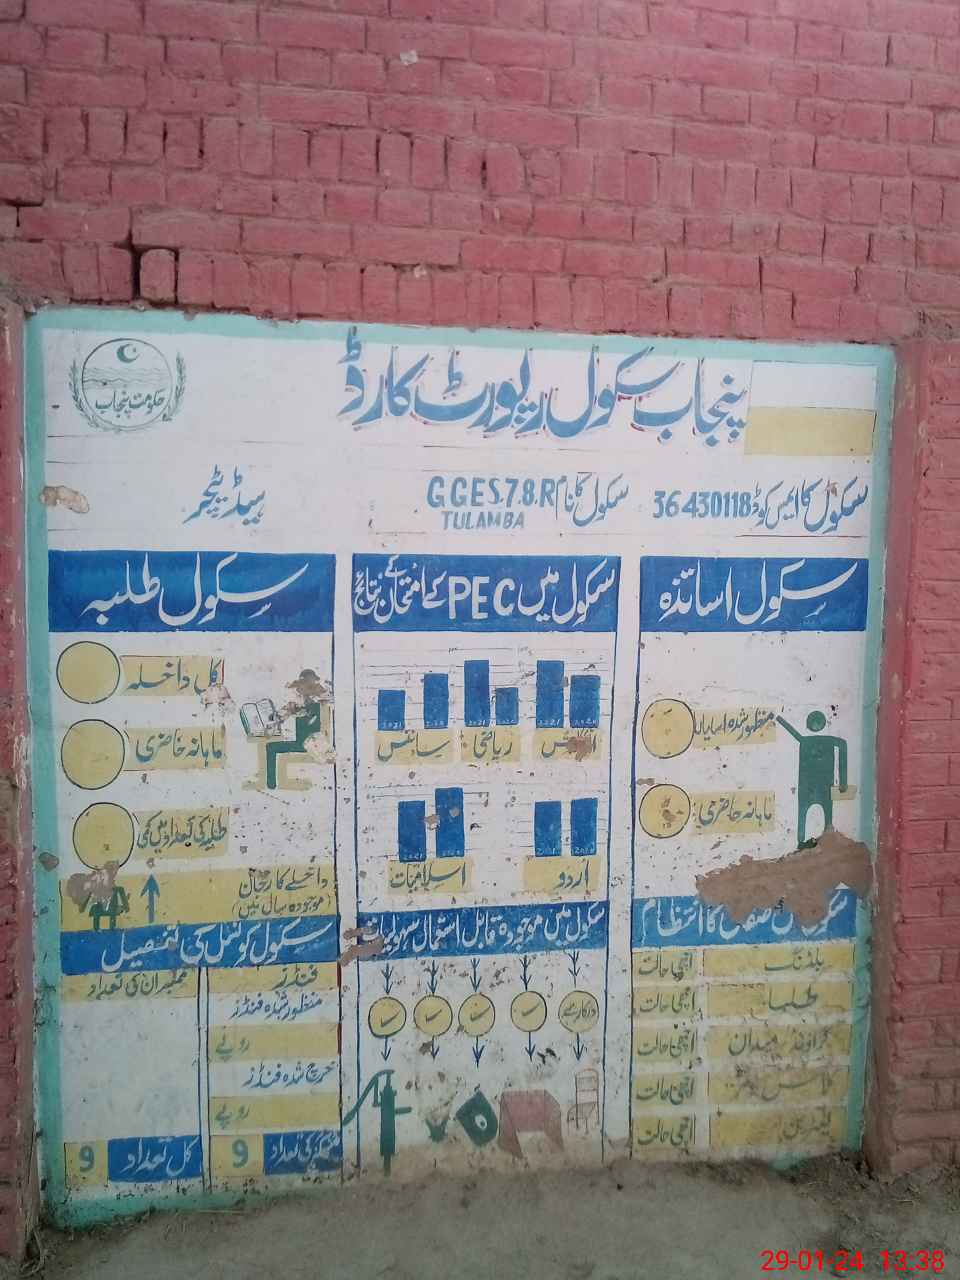 پنجاب سکول رپورٹ کارڈ
حکومت پنجاب
سکول کا ایمس کوڈ 36430118
سکول کا نام G.G.E.S.7.8.R
TULAMBA
ہیڈ ٹیچر
سکول اساتذہ
منظور شدہ اسامیاں
ماہانہ حاضری
سکول میں PEC کے امتحان کے نتائج
سائنس
ریاضی
2021
2020
2021
2020
2021
2020
اسلامیات
اردو
2021
سکول طلبہ
کل داخلہ
ماہانہ حاضری
طلبہ کی تعداد میں کمی
داخلے کا رجحان
(موجودہ سال میں)
سکول کا انتظام
بلڈنگ اچھی حالت
طلبا اچھی حالت
گراؤنڈ/میدان اچھی حالت
کلاس اچھی حالت
اچھی حالت
سکول میں موجودہ قابل استعمال سہولیات
درکار ہے
سکول کونسل کی تفصیل
فنڈز
ممبران کی تعداد
منظور شدہ فنڈز
روپے
خرچ شدہ فنڈز
روپے
کی تعداد 9
کل تعداد 9
29-01-24 13:38